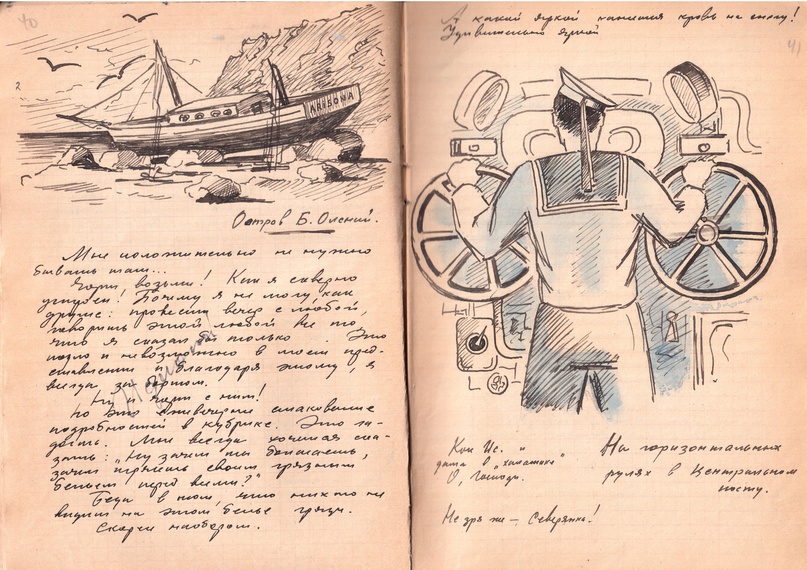 40
Остров Б. Олений.
Мне положительно не нужно
бывать там...
Чорт возьми! Как я скверно
устроен! Почему я не могу как
другие: провести вечер с любой,
говорить этой любой все то,
что я сказал только . Это
подло и невозможно в моем пред-
ставлении и благодаря этому, я
всегда за бортом.
Ну и чорт с ним!
Но это ежевечернее смакование
подробностей в кубрике. Это га-
достно. Мне всегда хочется ска-
зать: "Ну зачем ты
зачем трясешь своим грязным
бельем перед всеми?"
Беда в том, что никто не
видит на этом белье грязи.
Скорее наоборот.
А какой яркой кажется кровь на снегу!
Удивительно яркой
41
Как Ис. и
дама в "халатике"
О, Господи.
Не зря же — Северянка!
На горизонтальных
рулях в Центральном
посту.